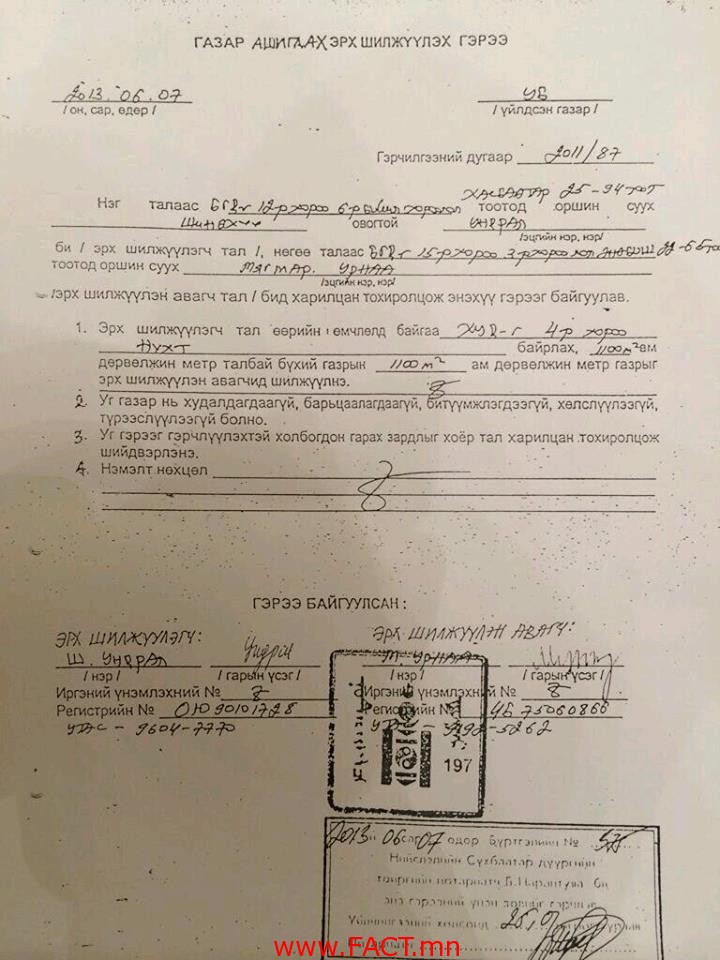 ГАЗАР АШИГЛАХ ЭРХ ШИЛЖҮҮЛЭХ ГЭРЭЭ
2013.06.07 УБ
/ он, сар, өдөр / / үйлдсэн газар /
Гэрчилгээний дугаар 2011/87
ХАСБААТАР 25-94 ТОТ
Нэг талаас БГД-г 12-р хороо 6-р тоотод оршин суух
Шинэхүү овогтой Ундрал
/эцгийн нэр, нэр/
би / эрх шилжүүлэгч тал /, нөгөө талаас БГД-г 15-р хороо 3-р хороолол
тоотод оршин суух Мягмар. Урнаа
/эцгийн нэр, нэр/
/эрх шилжүүлэн авагч тал / бид харилцан тохиролцож энэхүү гэрээг байгуулав.
1. Эрх шилжүүлэгч тал өөрийн өмчлөлд байгаа ХУД-г 4-р хороо
Нүхт байрлах, 1100м² ам
дөрвөлжин метр талбай бүхий газрын 1100м² ам дөрвөлжин метр газрыг
эрх шилжүүлэн авагчид шилжүүлнэ.
2. Уг газар нь худалдагдаагүй, барьцаалагдаагүй, битүүмжлэгдээгүй, хөлслүүлээгүй,
түрээслүүлээгүй болно.
3. Уг гэрээг гэрчлүүлэхтэй холбогдон гарах зардлыг хоёр тал харилцан тохиролцож
шийдвэрлэнэ.
4. Нэмэлт нөхцөл
ГЭРЭЭ БАЙГУУЛСАН :
ЭРХ ШИЛЖҮҮЛЭГЧ: ЭРХ ШИЛЖҮҮЛЭН АВАГЧ:
Ш. УНДРАЛ М. УРНАА
/ нэр / / гарын үсэг / / нэр / / гарын үсэг /
Иргэний үнэмлэхний № Иргэний үнэмлэхний №
Регистрийн № 75060866
УТАС - 9604-7770 -5262
197
2013 он 06 сар 07 өдөр Бүртгэлийн №
Нийслэлийн Сүхбаатар дүүргийн
тойргийн нотариатч Б.Нарантуяа би
энэ гэрээний үнэн зөвийг гэрчлэв
Үйлчилгээний хөлсөнд
www.FACT.mn